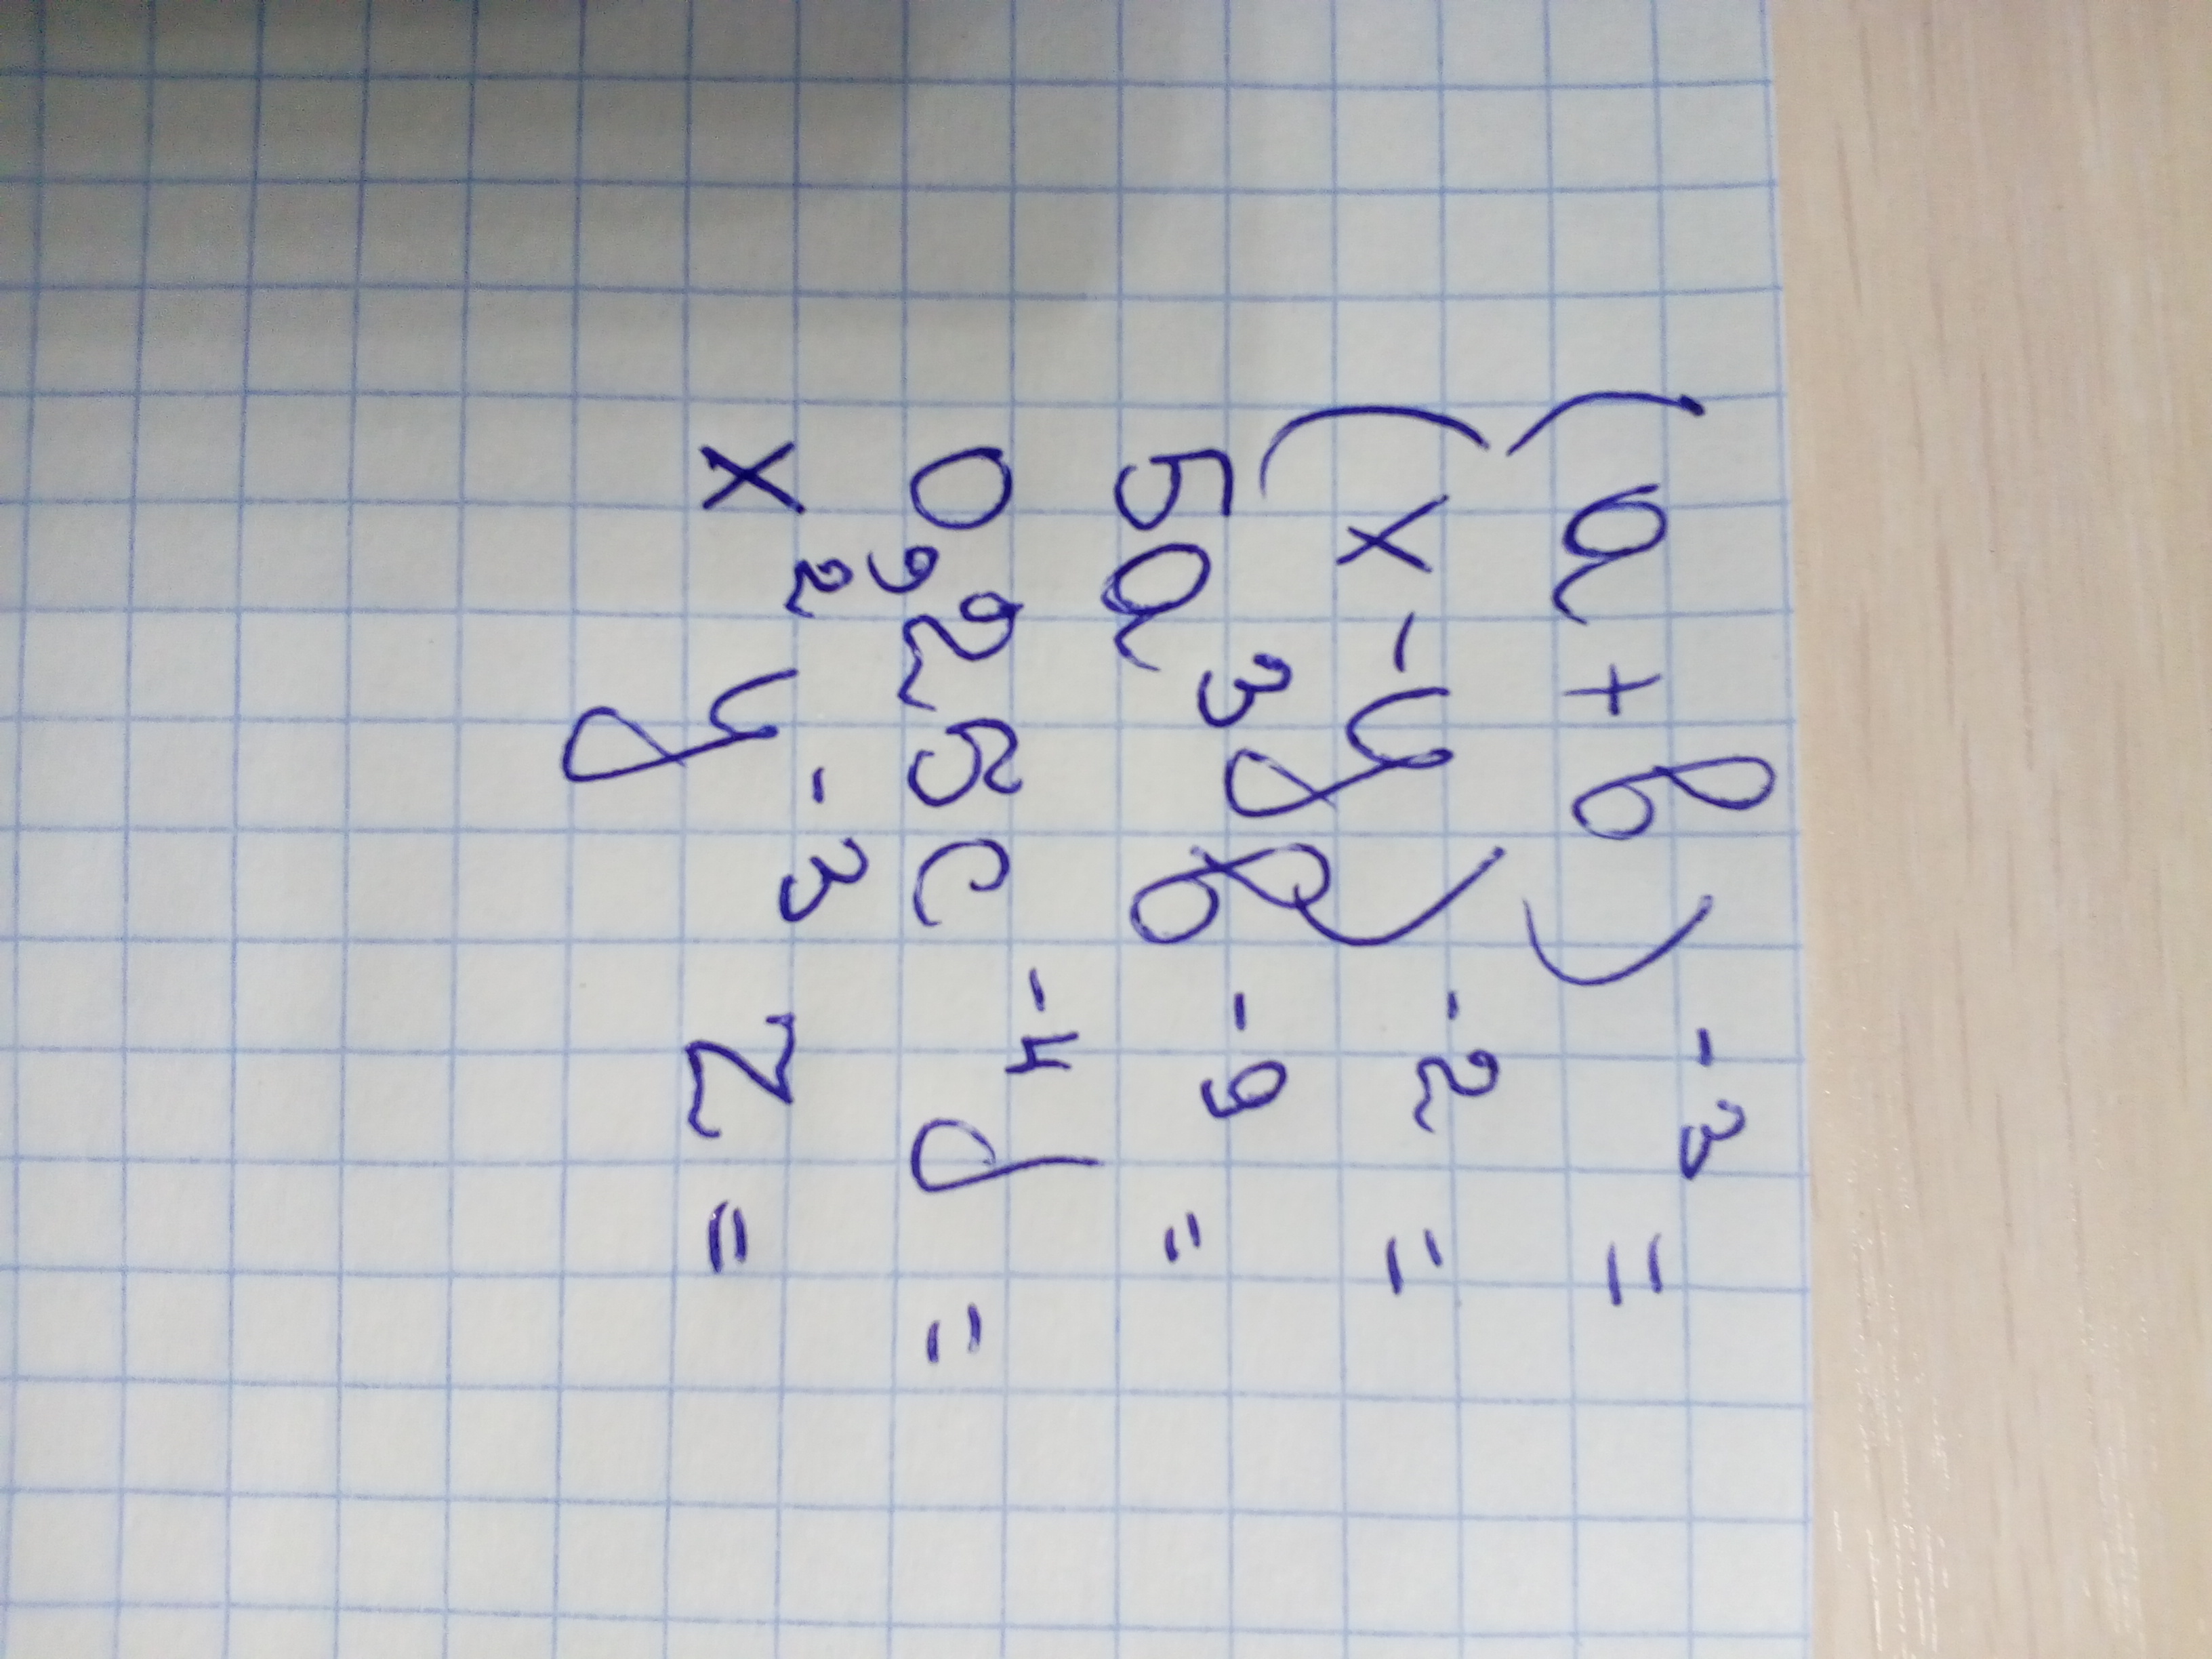 (a + b)⁻³ =
(x - y)⁻² =
5a³b⁻⁹ =
0,25c⁻⁴d =
x²y⁻³z =